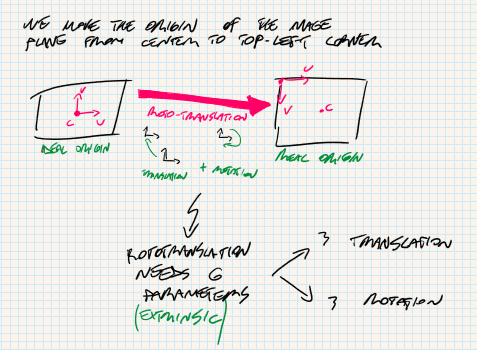 WE MAKE THE ORIGIN OF THE IMAGE
PLANE FROM CENTER TO TOP-LEFT CORNER
V
C U
IDEAL ORIGIN
ROTO-TRANSLATION
TRANSLATION + ROTATION
U
V
C
REAL ORIGIN
ROTOTRANSLATION
NEEDS 6
PARAMETERS
(EXTRINSIC)
3 TRANSLATION
3 ROTATION